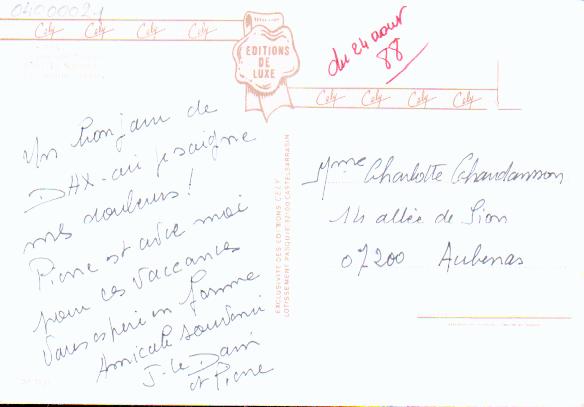 04000021
Cely Cely Cely Cely
EDITIONS
DE
LUXE
du 24 aout
88
Cely Cely Cely Cely
Un bonjour de
DAX - où je saigne
mes douleurs!
Pierre est avec moi
pour ces vaccances
Vous espère en forme
Amicale souvenir
J. Le Dain
et Pierre
EXCLUSIVITE DES EDITIONS CELY
LOTISSEMENT PASQUIE 82100 CASTELSARRASIN
Mme Charlotte Chardansson
14 allée de Sion
07200 Aubenas